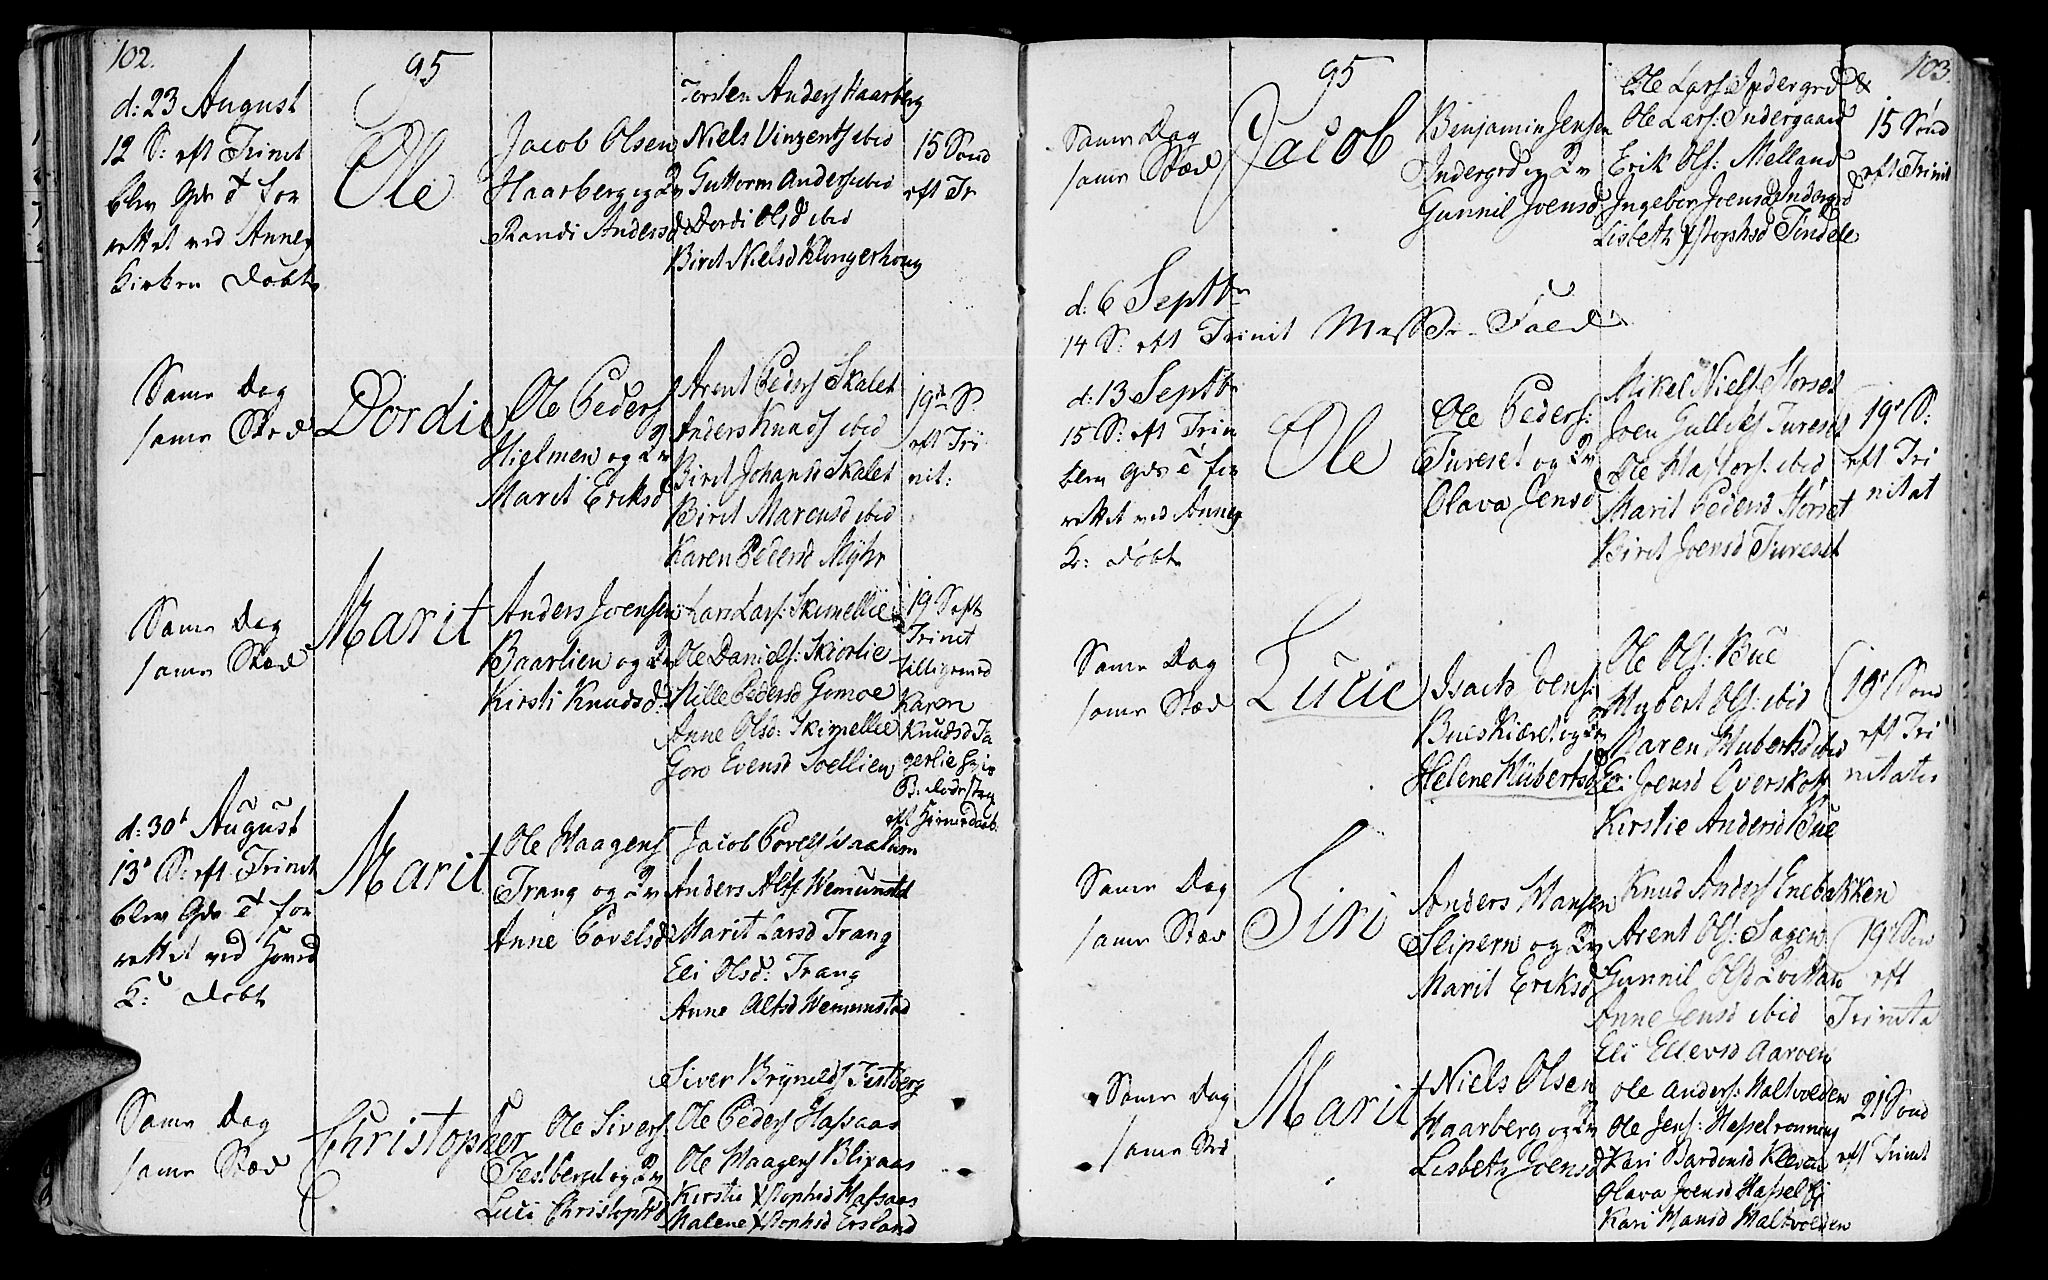 102.
95
d: 23 August
12 S: eft Trinit
blev Gds T for
rettet ved Annex
Kirken Døbt
Ole
Jacob Olsen
Haarberg og Hv
Randi Andersd
Torsten Anders Haarberg
Niels Vinzents ibid
Guttorm Anders ibid
Dordi Olsd ibid
Birit Nielsd Klingerhoug
15 Sønd
eft Tr
Same Dag
same Stæd
Dordi
Ole Peders
Hielmen og Hv
Marit Eriksd
Arent Peders Skalet
Anders Knuds ibid
Birit Johansd Skalet
Birit Marcusd ibid
Karen Pedersd Myhr
19de S.
eft Tri
nit:
Same Dag
same Stæd
Marit
Anders Joensen
Baarlien og Hv
Kirsti Knudsd:
Lars Lars: Skimellie
Ole Daniels: Skiørlie
Nille Pedersd Gomoe
Anne Olsd: Skimellie
Goro Evensd Soellien
19 S eft
Trinit
tilligemed
Karen
Knudsd
d: 30t August
13de S eft Trinit
blev Gds T for
rettet ved Hoved
K: Døbt
Marit
Ole Haagens
Trang og Hv
Anne Povelsd
Jacob Povels
Anders Alfs Wemunstad
Marit Larsd Trang
Eli Olsd: Trang
Anne Alfsd Wemunstad
Same Dag
same Stæd
Christopher
Ole Sivers:
Festberget og Hv
Luci Christophd
Siver Brynilds Festberg
Ole Peders Hafsaas
Ole Haagens Blixaas
Kirstie Xstophsd Hafsaas
Malene Xstophsd Ersland
103.
95
Same Dag
same Stæd
Jacob
Benjamin Jensen
Indergrd og Hv
Gunnil Joensd
Ole Lars Indergrd &
Ole Lars: Indergaard
Erik Ols: Melland
Ingebor Joensd Indergrd
Lisbeth Xstophsd Tindele
15 Sønd
eft Trinit
d: 6 Septbr
14 S: eft Trinit Messe Fald
d: 13 Septbr
15 S: eft Trin
blev Gds T for
rettet ved Annex
K: Døbt
Ole
Ole Peders:
Tureset og Hv
Olava Jensd
Mikel Niels Storset
Joen Gulliks Tureset
Ole Hastors: ibid
Marit Pedersd Storset
Birit Joensd Tureset
19de S:
eft Tri
nitat
Same Dag
same Stæd
Lucie
Isach Joens:
Bueskiæret og Hv
Helene Hubertsd
Ole Ols: Bue
Hubert Ols: ibid
Maren Hubertsd ibid
El: Joensd Overskott
Kirstie Andersd Bue
19de Sønd
eft Tri
nitatis
Same Dag
same Stæd
Siri
Anders Hansen
Slipern og Hv
Marit Eriksd
Knud Anders Enebakken
Arent Ols: Sagen
Gunnil Olsd
Anne Jensd ibid
Eli Ellevsd Aaroen
19de Søn
eft
Trinita
Same Dag
same Std
Marit
Niels Olsen
Haarberg og Hv
Lisbeth Joensd
Ole Anders: Haltvolden
Ole Jens: Hasselrønning
Kari Bardonsd Kleven
Olava Joensd
Kari Hansd Haltvolden
21 Sønd
eft Trinit